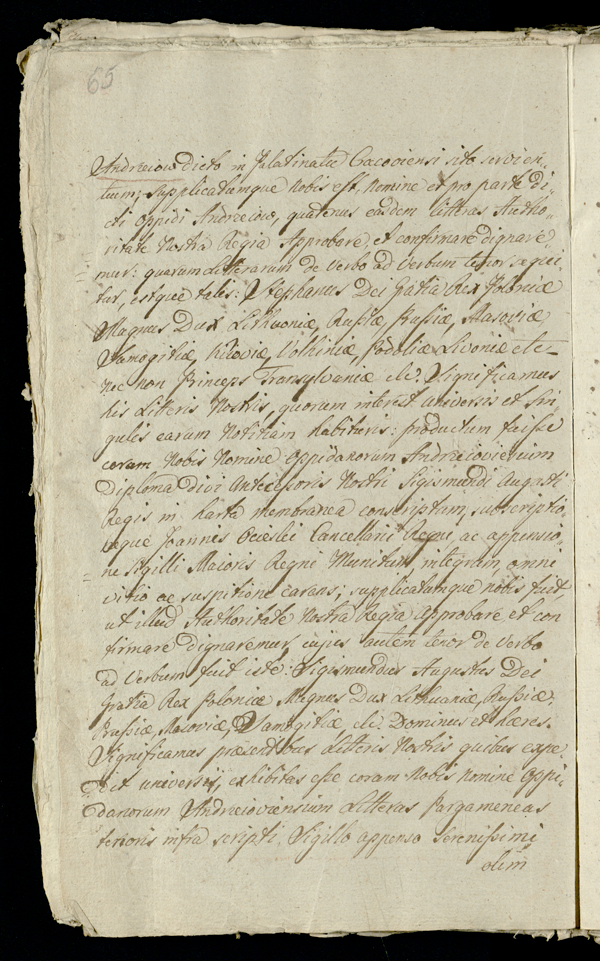 65
Andrzeiow dicto in Palatinatu Cracoviensi sito servien„
tium; supplicatumque nobis est, nomine et pro parte di„
cti oppidi Andrzeiow, quatenus easdem litteras Autho„
ritate Nostra Regia Approbare, et confirmare dignare„
mur: quarum litterarum de verbo ad verbum tenor sequi
tur, estque talis: Stephanus Dei Gratia Rex Poloniæ
Magnus Dux Lithvoniæ, Rußiæ, Prußiæ, Masoviæ
Samogitiæ, Kijoviæ, Volhiniæ, Podoliæ Livoniæ etc
nec non Princeps Transylvaniæ etc. Significamus
his Litteris Nostris, quorum interest universis et sin
gulis earum Notitiam habituris: productum fuiße
coram Nobis Nomine Oppidanorum Andrzeioviensium
Diploma divi Antecessoris Nostri Sigismundi Augusti
Regis in harta membranea conscriptum, subscriptio„
neque Joannis Ocieslci Cancellarii Regni, ac appensio„
ne Sigilli Maioris Regni Munitum, integrum, omni
vitio ac suspitione carens; supplicatumque nobis fuit
ut illud Authoritate Nostra Regia approbare et con
firmare dignaremur, cujus autem tenor de verbo
ad verbum fuit iste: Sigismundus Augustus Dei
Gratia Rex Poloniæ Magnus Dux Lithuaniæ, Rußiæ,
Prußiæ, Masoviæ, Samogitiæ etc. Dominus et hæres.
Significamus præsentibus Litteris Nostris quibus expe
dit universis, exhibitas eße coram Nobis nomine Oppi„
danorum Andrzeioviensium Litteras Pargameneas
tenoris infra scripti, Sigillo appenso Serenißimi
olim